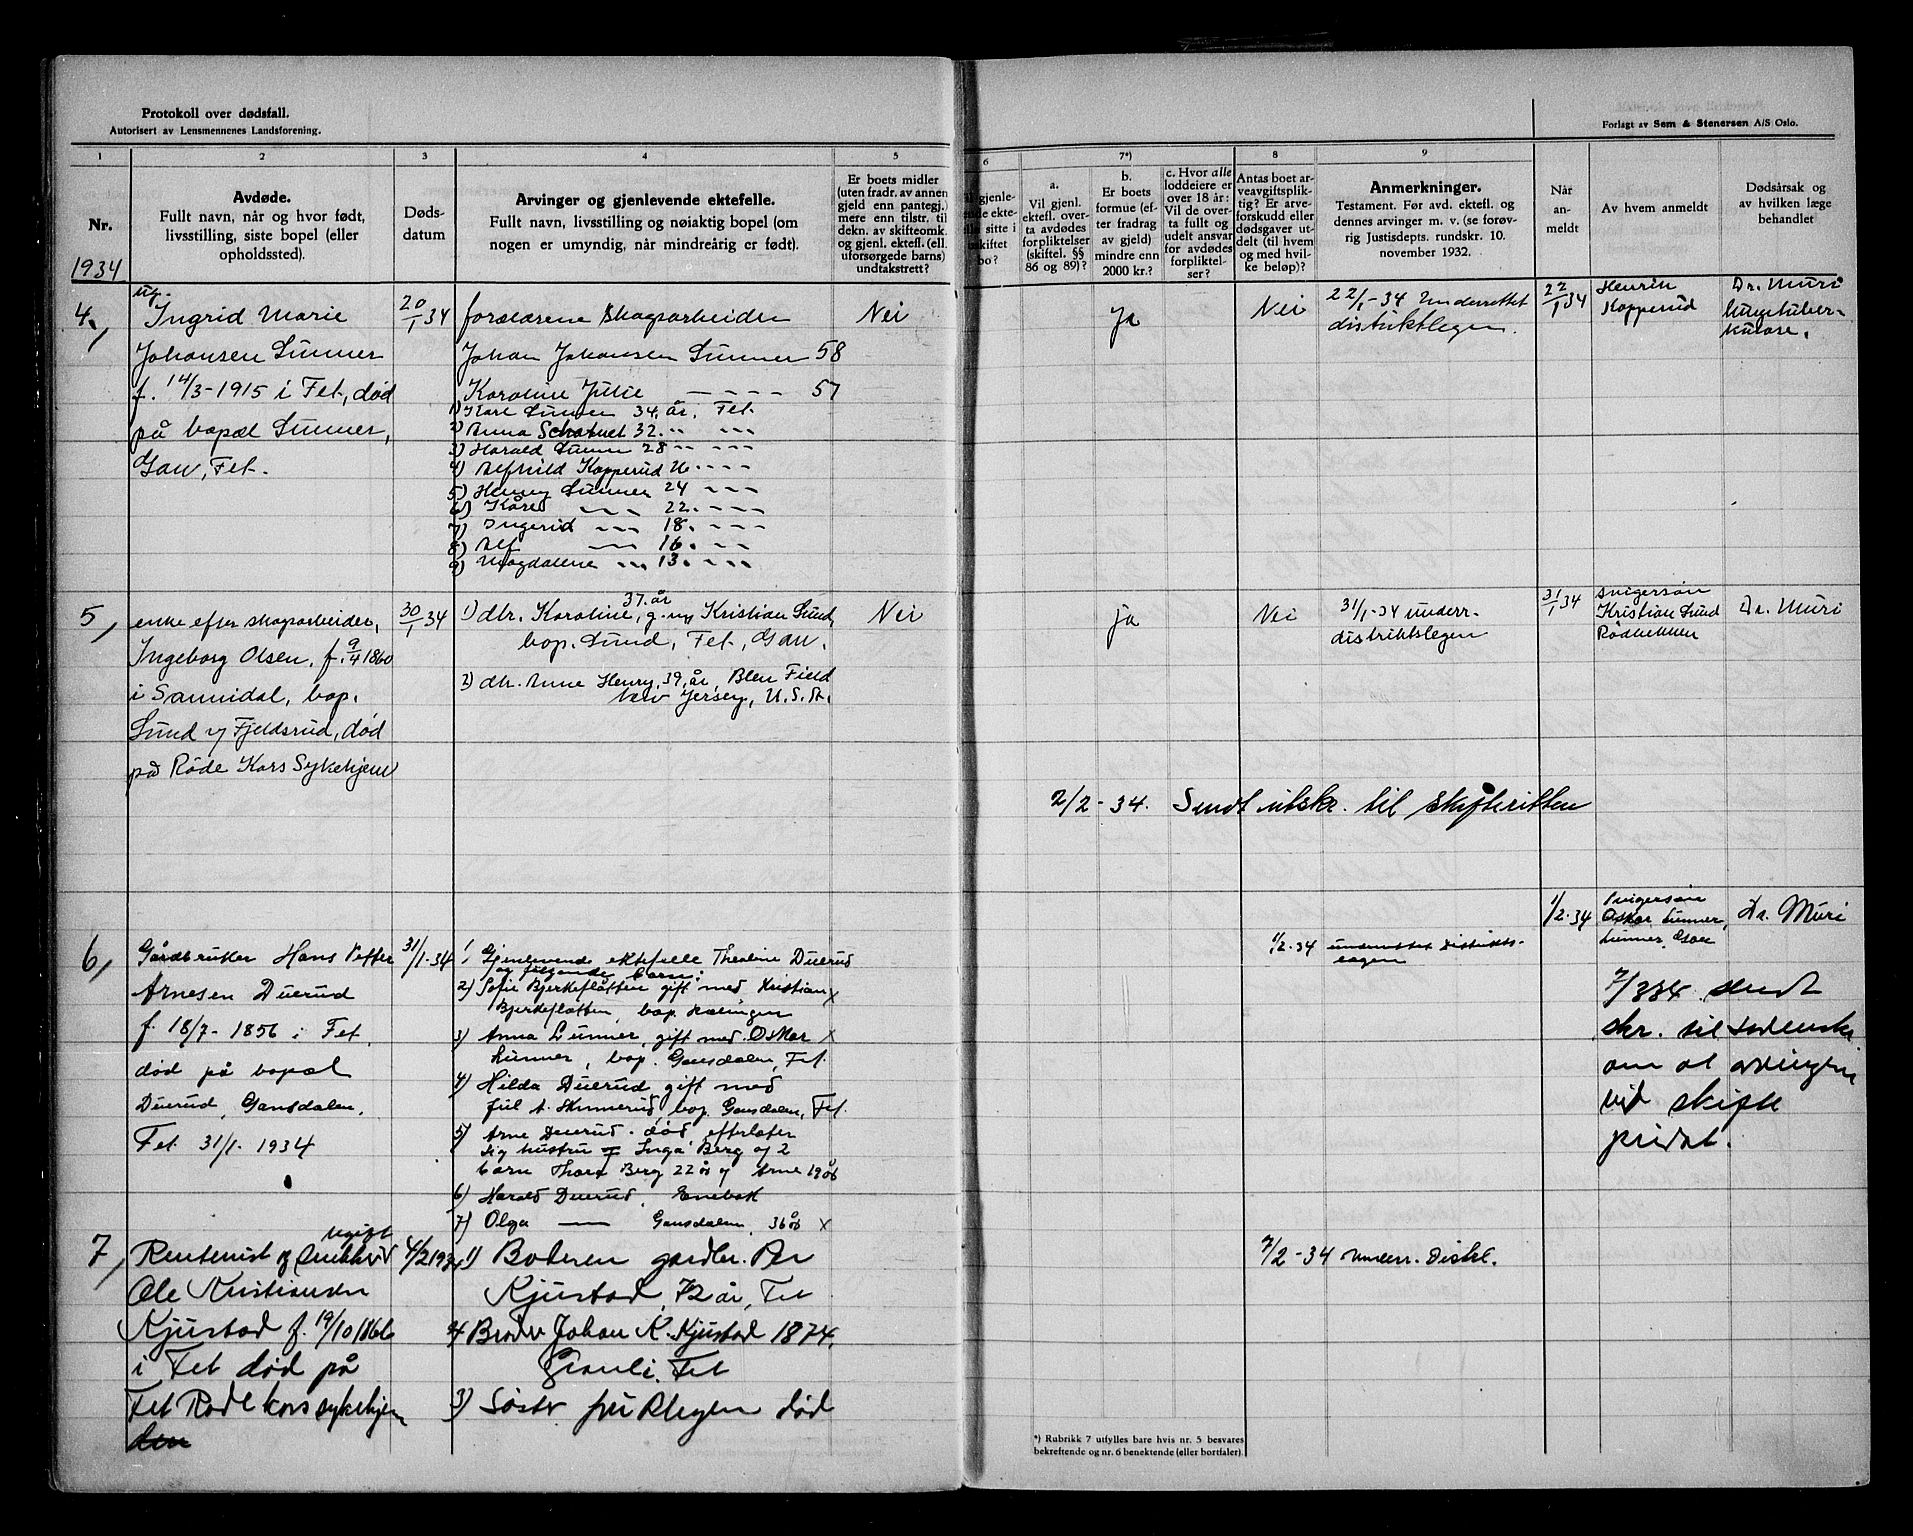 Protokoll over dødsfall.
Autorisert av Lensmennenes Landsforening.
Forlagt av Sem & Stenersen A/S Oslo.
1 2 3 4 5 6 7*) 8 9
Nr.
1934
Avdøde.
Fullt navn, når og hvor født,
livsstilling, siste bopel (eller
opholdssted).
Døds-
datum
Arvinger og gjenlevende ektefelle.
Fullt navn, livsstilling og nøiaktig bopel (om
nogen er umyndig, når mindreårig er født).
Er boets midler
(uten fradr. av annen
gjeld enn pantegj.)
mere enn tilstr. til
dekn. av skifteomk.
og gjenl. ektefl. (ell.
uforsørgede barns)
undtakstrett?
l gjenle-
nde ekte-
lle sitte i
skiftet
bo?
a.
Vil gjenl.
ektefl. over-
ta avdødes
forpliktelser
(skiftel. §§
86 og 89)?
b.
Er boets
formue (ef-
ter fradrag
av gjeld)
mindre enn
2000 kr.?
c. Hvor alle
loddeiere er
over 18 år:
Vil de over-
ta fullt og
udelt ansvar
for avdødes
forpliktel-
ser?
Antas boet ar-
veavgiftsplik-
tig? Er arve-
forskudd eller
dødsgaver ut-
delt (til hvem
og med hvil-
ke beløp)?
Anmerkninger.
Testament. Før avd. ektefl. og
dennes arvinger m. v. (se forøv-
rig Justisdepts. rundskr. 10.
november 1932.
Når
an-
meldt
Av hvem anmeldt
Dødsårsak og
av hvilken læge
behandlet
4,
ug.
Ingrid Marie
Johansen Sunner
f. 14/3-1915 i Fet, død
på bopæl Sunner,
Gan, Fet.
20/1 34
forældrene skogsarbeider
Johan Johansen Sunner 58
Karoline Julie — — — — 57
1) Kare Sunner 34 år, Fet
2) Anna 32. " "
3) Harald Sunner 28 " "
4) Alfhild Kopperud 26 - - - -
5) Henry Sunner 24 - - -
6) Kåre — — 22. - - - -
7) Ingerid - - - 18. - - -
8) Alf — — 16. - - -
9) Magdalene - - - 13. - - -
Nei
ja
Nei
22/1-34 Underrettet
distriktslegen.
22/1 34
Henrik
Kopperud
Dr. Muri
lungetuber-
kulose.
5,
enke efter skogsarbeider,
Ingeborg Olsen, f. 9/4 1860
i Sannidal, bop.
Sund v/ Fjeldsrud, død
på Røde Kors Sykehjem
30/1 34
1) dtr. Karoline, 37 år g. m/ Kristian Sund,
bop. Sund, Fet, Gan.
2) dtr. Anne Henry, 39 år, Blen Field
New Jersey, U.S.A.
Nei
ja
Nei
31/1-34 underr.
distriktslegen
31/1 34
Svigersøn
Kristian Sund
Rødbekken
Dr. Muri
2/2-34. Sendt utskr. til skifteretten
6,
Gårdbruker Hans Petter
Arnesen Duerud
f. 18/7-1856 i Fet,
død på bopæl
Duerud, Gansdalen,
Fet 31/1-1934
31/1-34
1 Gjenlevende ektefelle Theoline Duerud
og følgende barn:
2) Sofie Bjerkeflåtten gift med Kristian x
Bjerkeflåtten, bop. Rælingen
3) Anna Lunner, gift med Oskar x
Lunner, bop. Gansdalen, Fet.
4) Hilda Duerud gift med
Jul A. Skinnerud, bop. Gansdalen, Fet.
5) Arne Duerud. død efterlater
sig hustru Inga Berg og 2
barn Thore Berg 22 år og Arne 19 år
6) Harald Duerud, Enebak
7) Olga — Gansdalen 36 år x
1/2-34 underrettet distrikts-
legen
1/2-34
Svigersøn
Oskar Lunner,
Lunner, Gan
Dr. Muri
7/3 34 sendt
skr. til
om at arvingene
vil skifte
privat.
7,
ugift
Rentenist og
Ole Kristiansen
Kjustad f. 19/10 1866
i Fet død på
Fet Røde kors sykehjem
den
4/2 1934
1) Boteren gardbr. Per
Kjustad, 72 år, Fet
2) Broder Johan K. Kjustad 1874.
Fet
3) Søster fru død
7/2-34 Underr. Distl.
*) Rubrikk 7 utfylles bare hvis nr. 5 besvares
bekreftende og nr. 6 benektende (eller bortfaler).